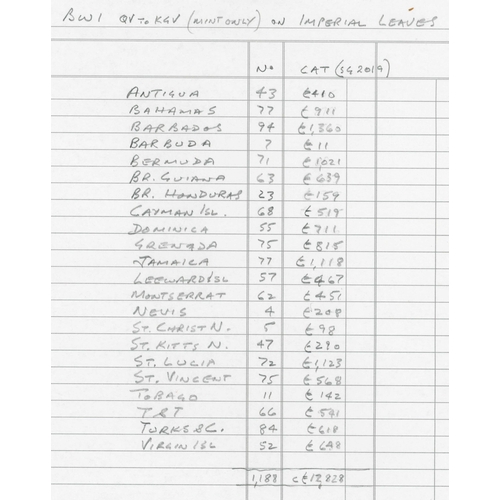 BWI QV to KGV (MINT ONLY) ON IMPERIAL LEAVES
No CAT (SG2019)
ANTIGUA 43 £410
BAHAMAS 77 £911
BARBADOS 94 £1,360
BARBUDA 7 £11
BERMUDA 71 £1,021
BR. GUIANA 63 £639
BR. HONDURAS 23 £159
CAYMAN ISL. 68 £519
DOMINICA 55 £711
GRENADA 75 £815
JAMAICA 77 £1,118
LEEWARD ISL 57 £467
MONTSERRAT 62 £451
NEVIS 4 £208
ST. CHRIST N. 5 £98
ST. KITTS N. 47 £290
ST. LUCIA 72 £1,123
ST. VINCENT 75 £568
TOBAGO 11 £142
T&T 66 £541
TURKS & C. 84 £618
VIRGIN ISL 52 £648
1,188 c£12,828